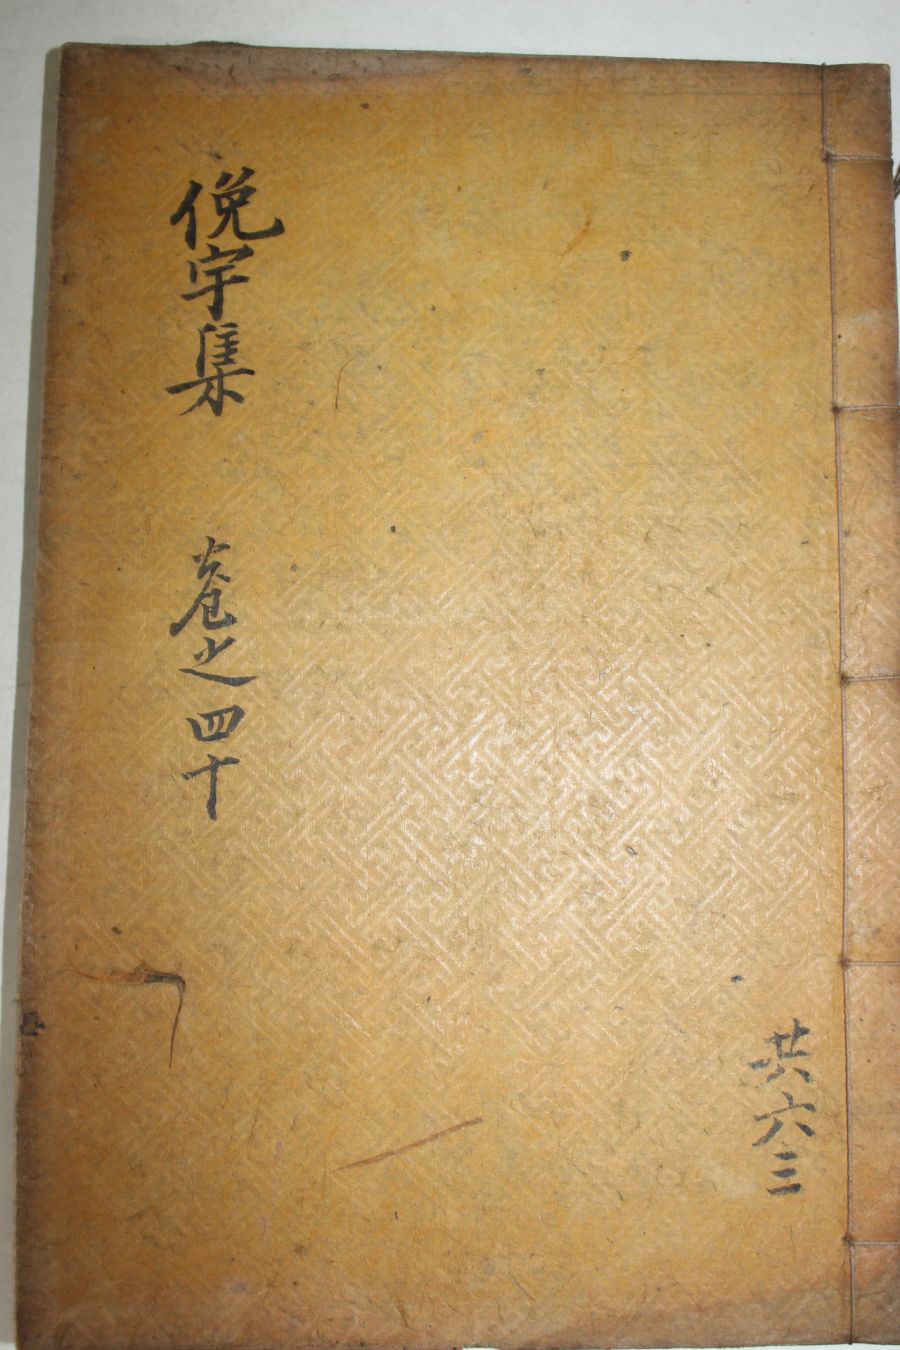 共六三
俛宇集 卷之四十